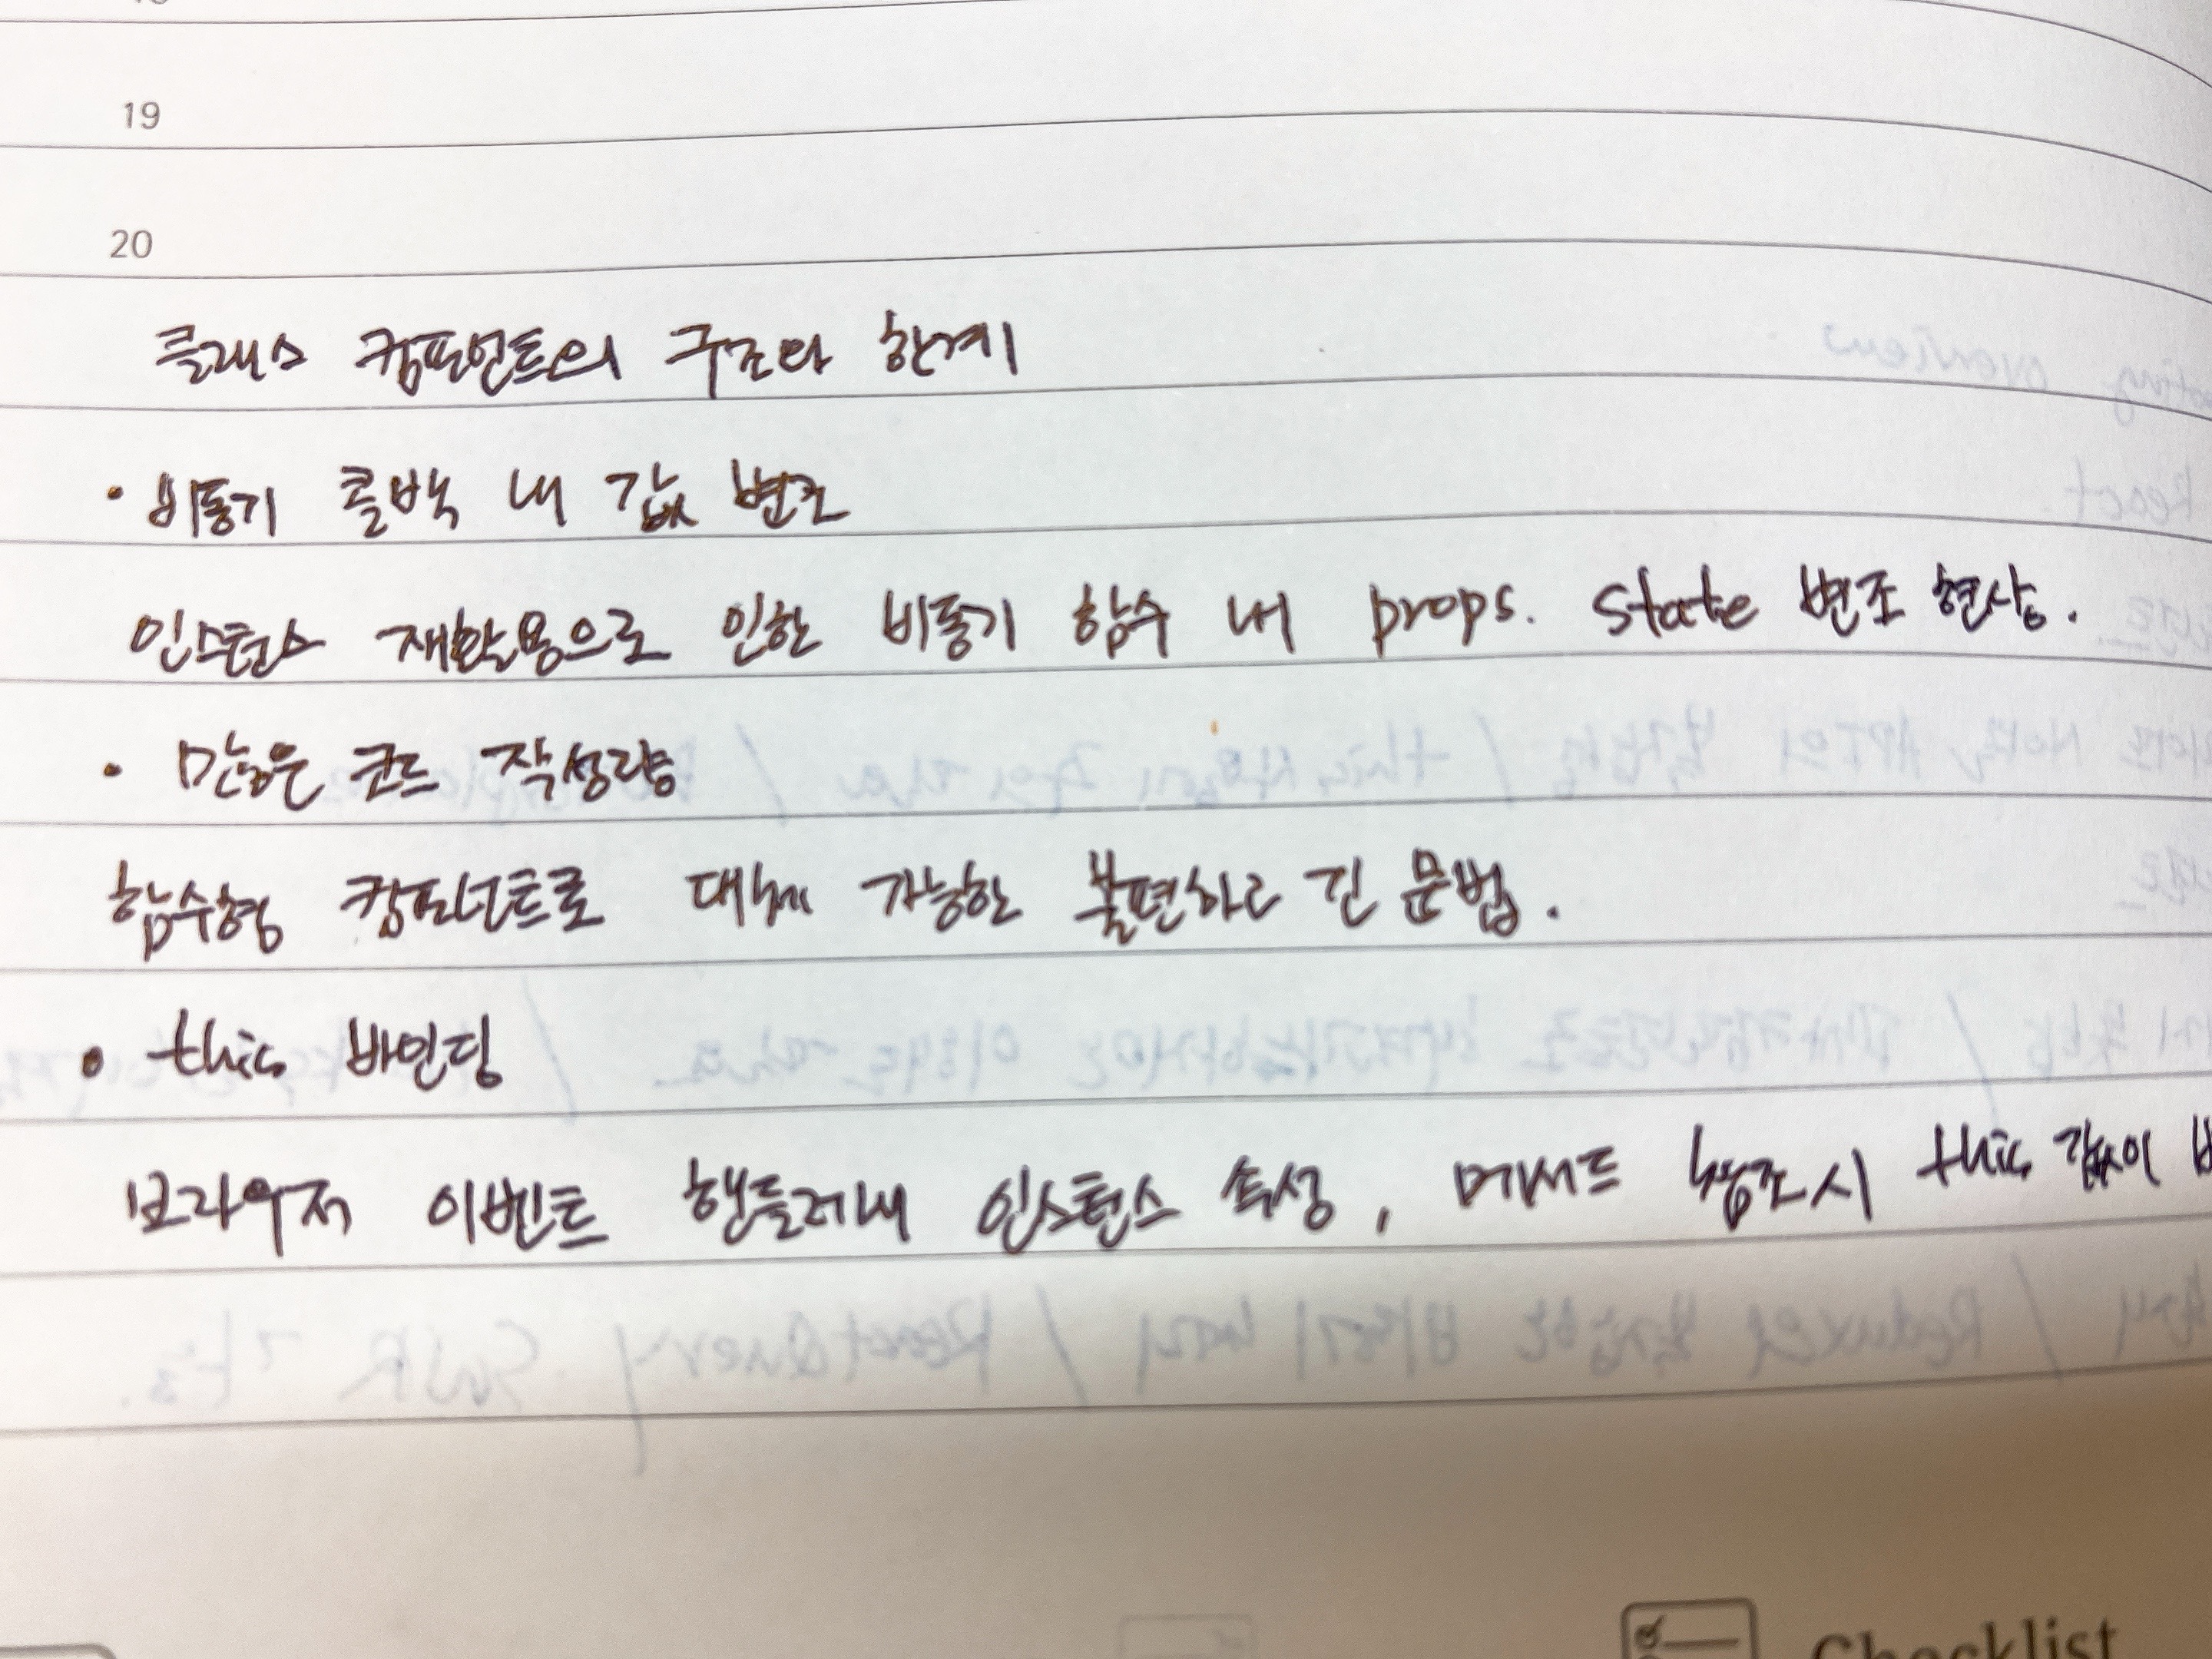 19
20
클래스 컴포넌트의 구조와 한계
· 비동기 콜백 내 값 변조
인스턴스 재활용으로 인한 비동기 함수 내 props. state 변조 현상.
· 많은 코드 작성량
함수형 컴포넌트로 대체 가능한 불편하고 긴 문법.
· this 바인딩
브라우저 이벤트 핸들러내 인스턴스 속성, 메서드 참조시 this 값이
Checklist